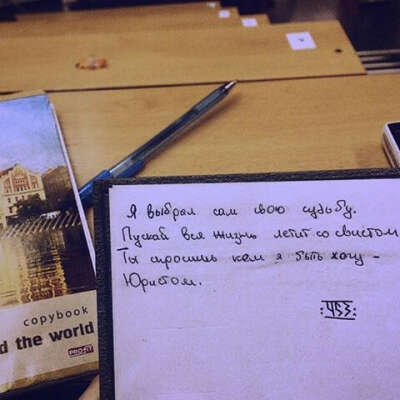 Я выбрал сам свою судьбу.
Пускай вся жизнь летит со свистом
Ты спросишь кем я быть хочу -
Юристом.
copybook
d the world
PROFIT